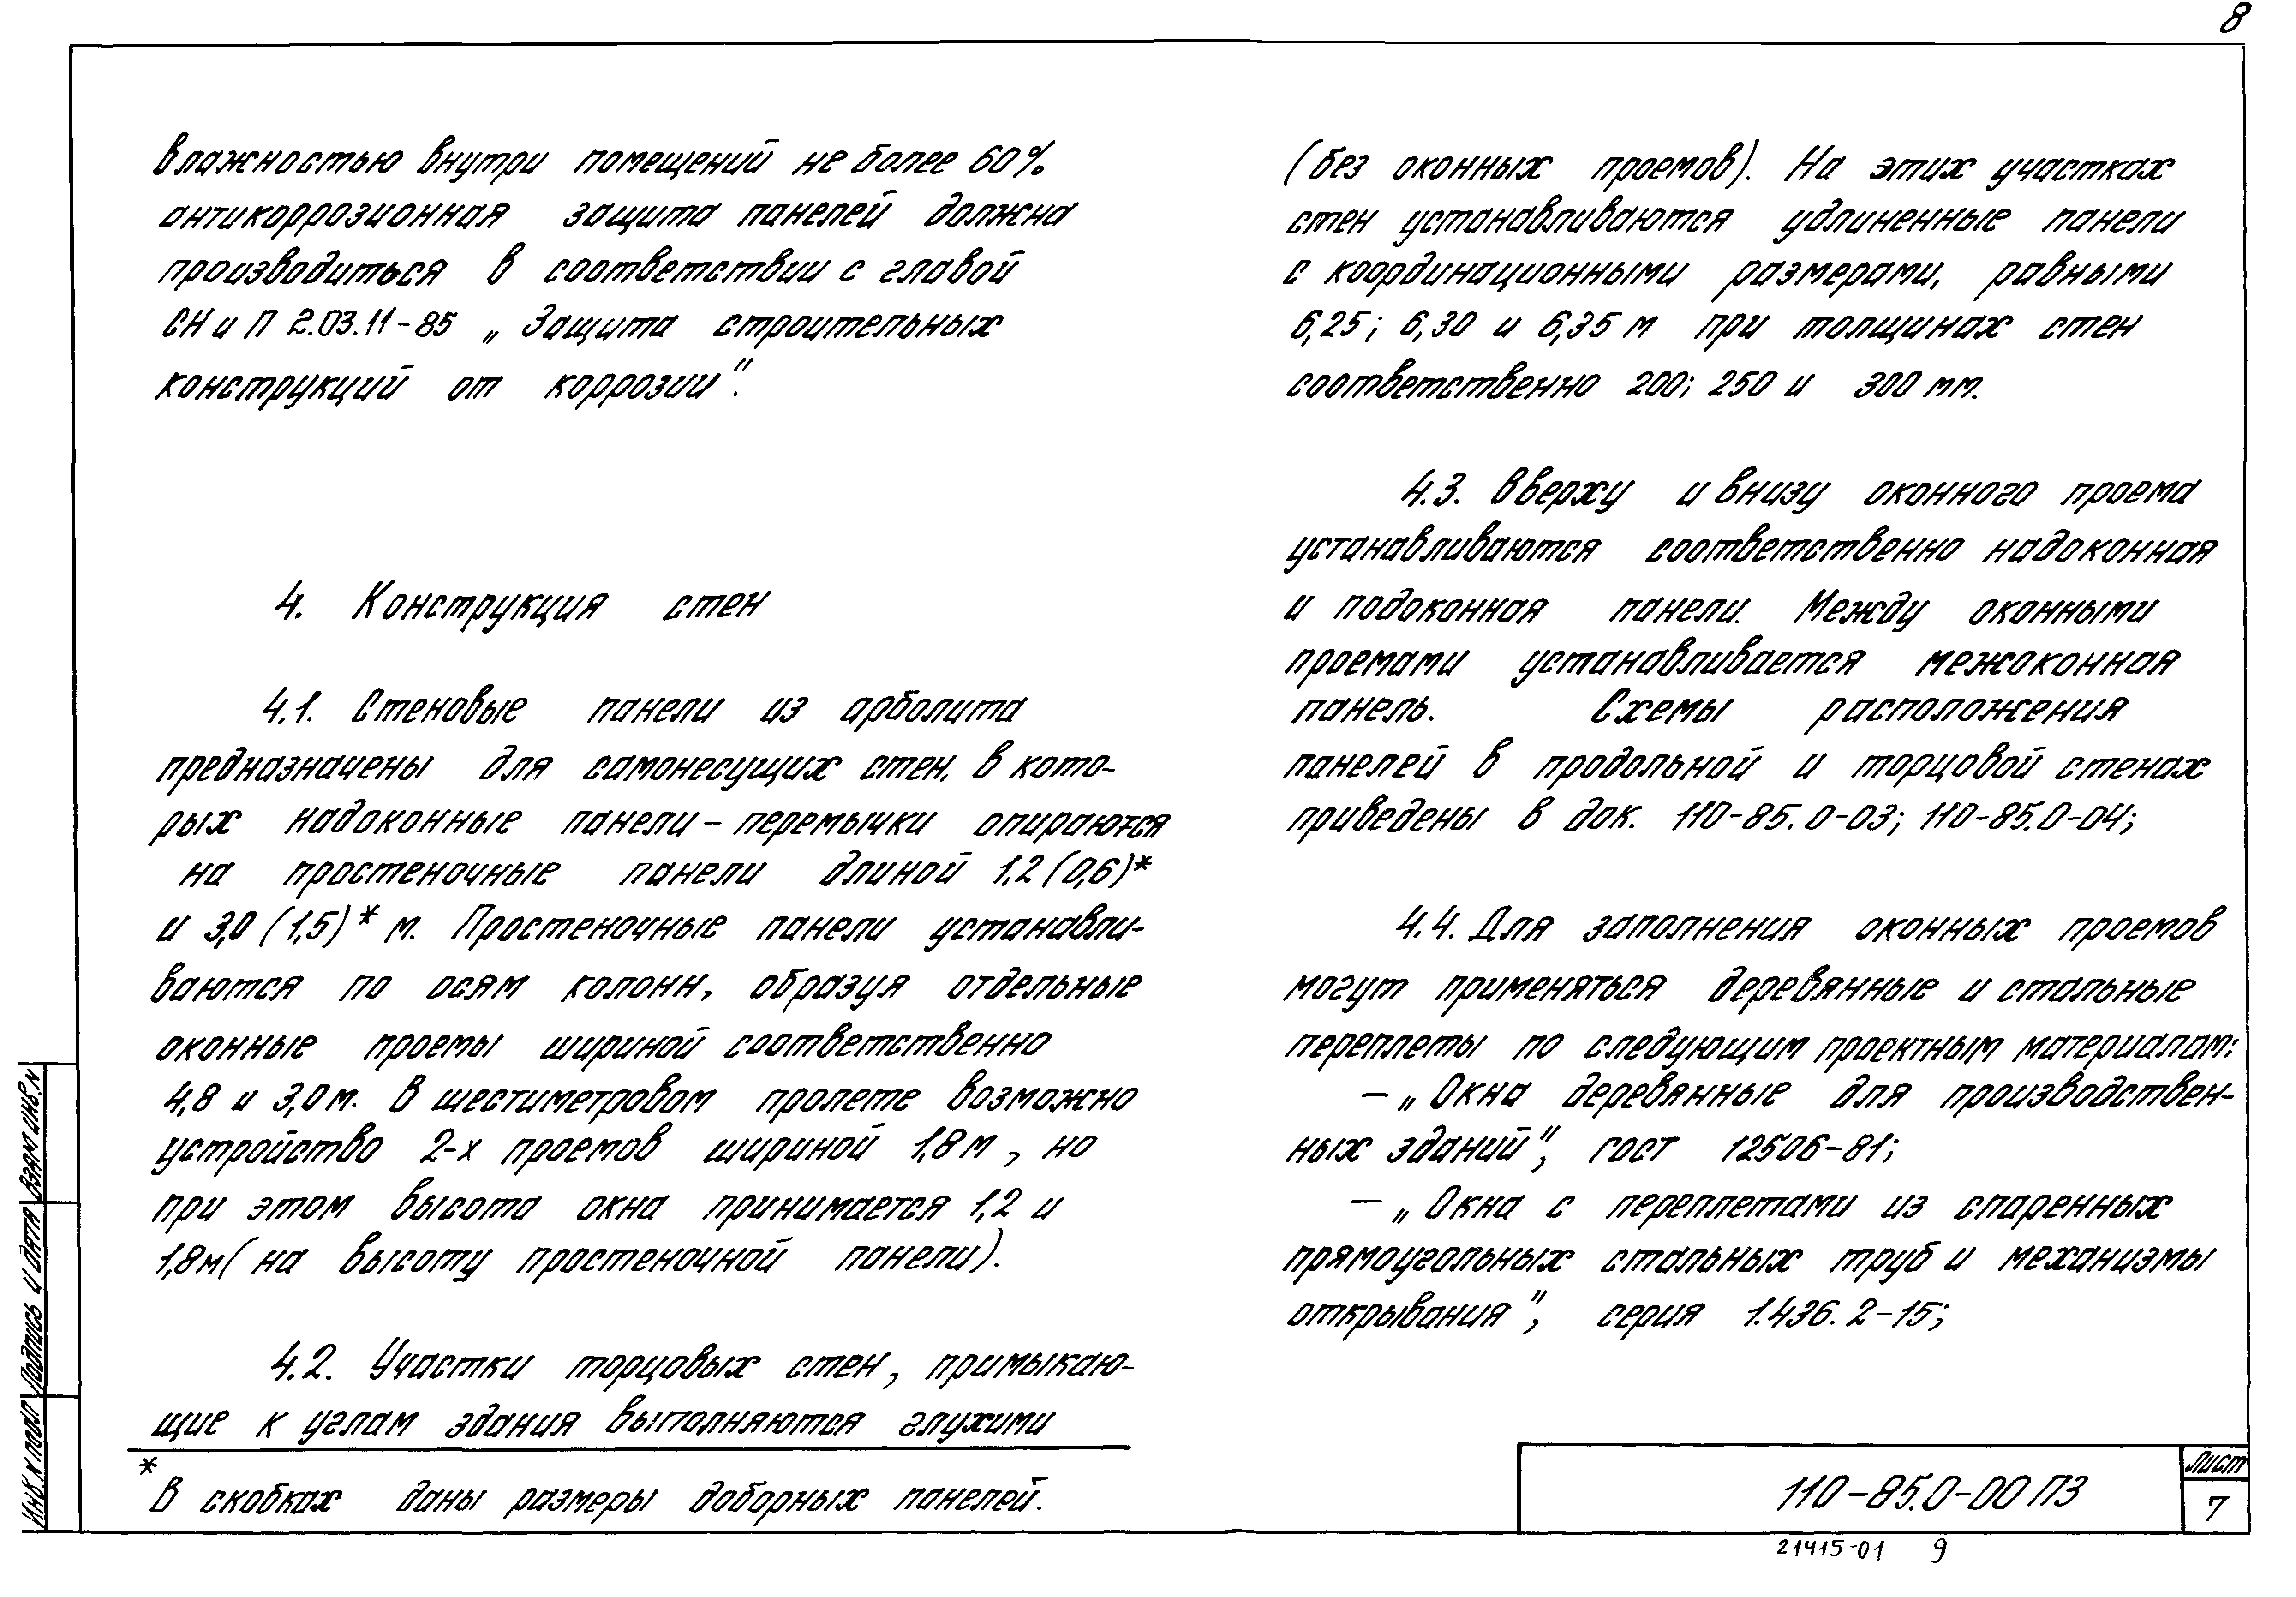 8
влажностью внутри помещений не более 60%
антикоррозионная защита панелей должна
производиться в соответствии с главой
СНиП 2.03.11-85 „Защита строительных
конструкций от коррозии".
4. Конструкция стен
4.1. Стеновые панели из арболита
предназначены для самонесущих стен, в кото-
рых надоконные панели-перемычки опираются
на простеночные панели длиной 1,2 (0,6)*
и 3,0 (1,5)* м. Простеночные панели устанавли-
ваются по осям колонн, образуя отдельные
оконные проемы шириной соответственно
4,8 и 3,0 м. В шестиметровом пролете возможно
устройство 2-х проемов шириной 1,8 м, но
при этом высота окна принимается 1,2 и
1,8 м (на высоту простеночной панели).
4.2. Участки торцовых стен, примыкаю-
щие к углам здания выполняются глухими
* В скобках даны размеры доборных панелей.
(без оконных проемов). На этих участках
стен устанавливаются удлиненные панели
с координационными размерами, равными
6,25; 6,30 и 6,35 м при толщинах стен
соответственно 200; 250 и 300 мм.
4.3. Вверху и внизу оконного проема
устанавливаются соответственно надоконная
и подоконная панели. Между оконными
проемами устанавливается межоконная
панель. Схемы расположения
панелей в продольной и торцовой стенах
приведены в док. 110-85.0-03; 110-85.0-04;
4.4. Для заполнения оконных проемов
могут применяться деревянные и стальные
переплеты по следующим проектным материалам:
— „Окна деревянные для производствен-
ных зданий", ГОСТ 12506-81;
— „Окна с переплетами из спаренных
прямоугольных стальных труб и механизмы
открывания", серия 1.436.2-15;
Инв. N подл Подпись и дата Взам инв. N
110-85.0-00 ПЗ
Лист
7
21415-01 9